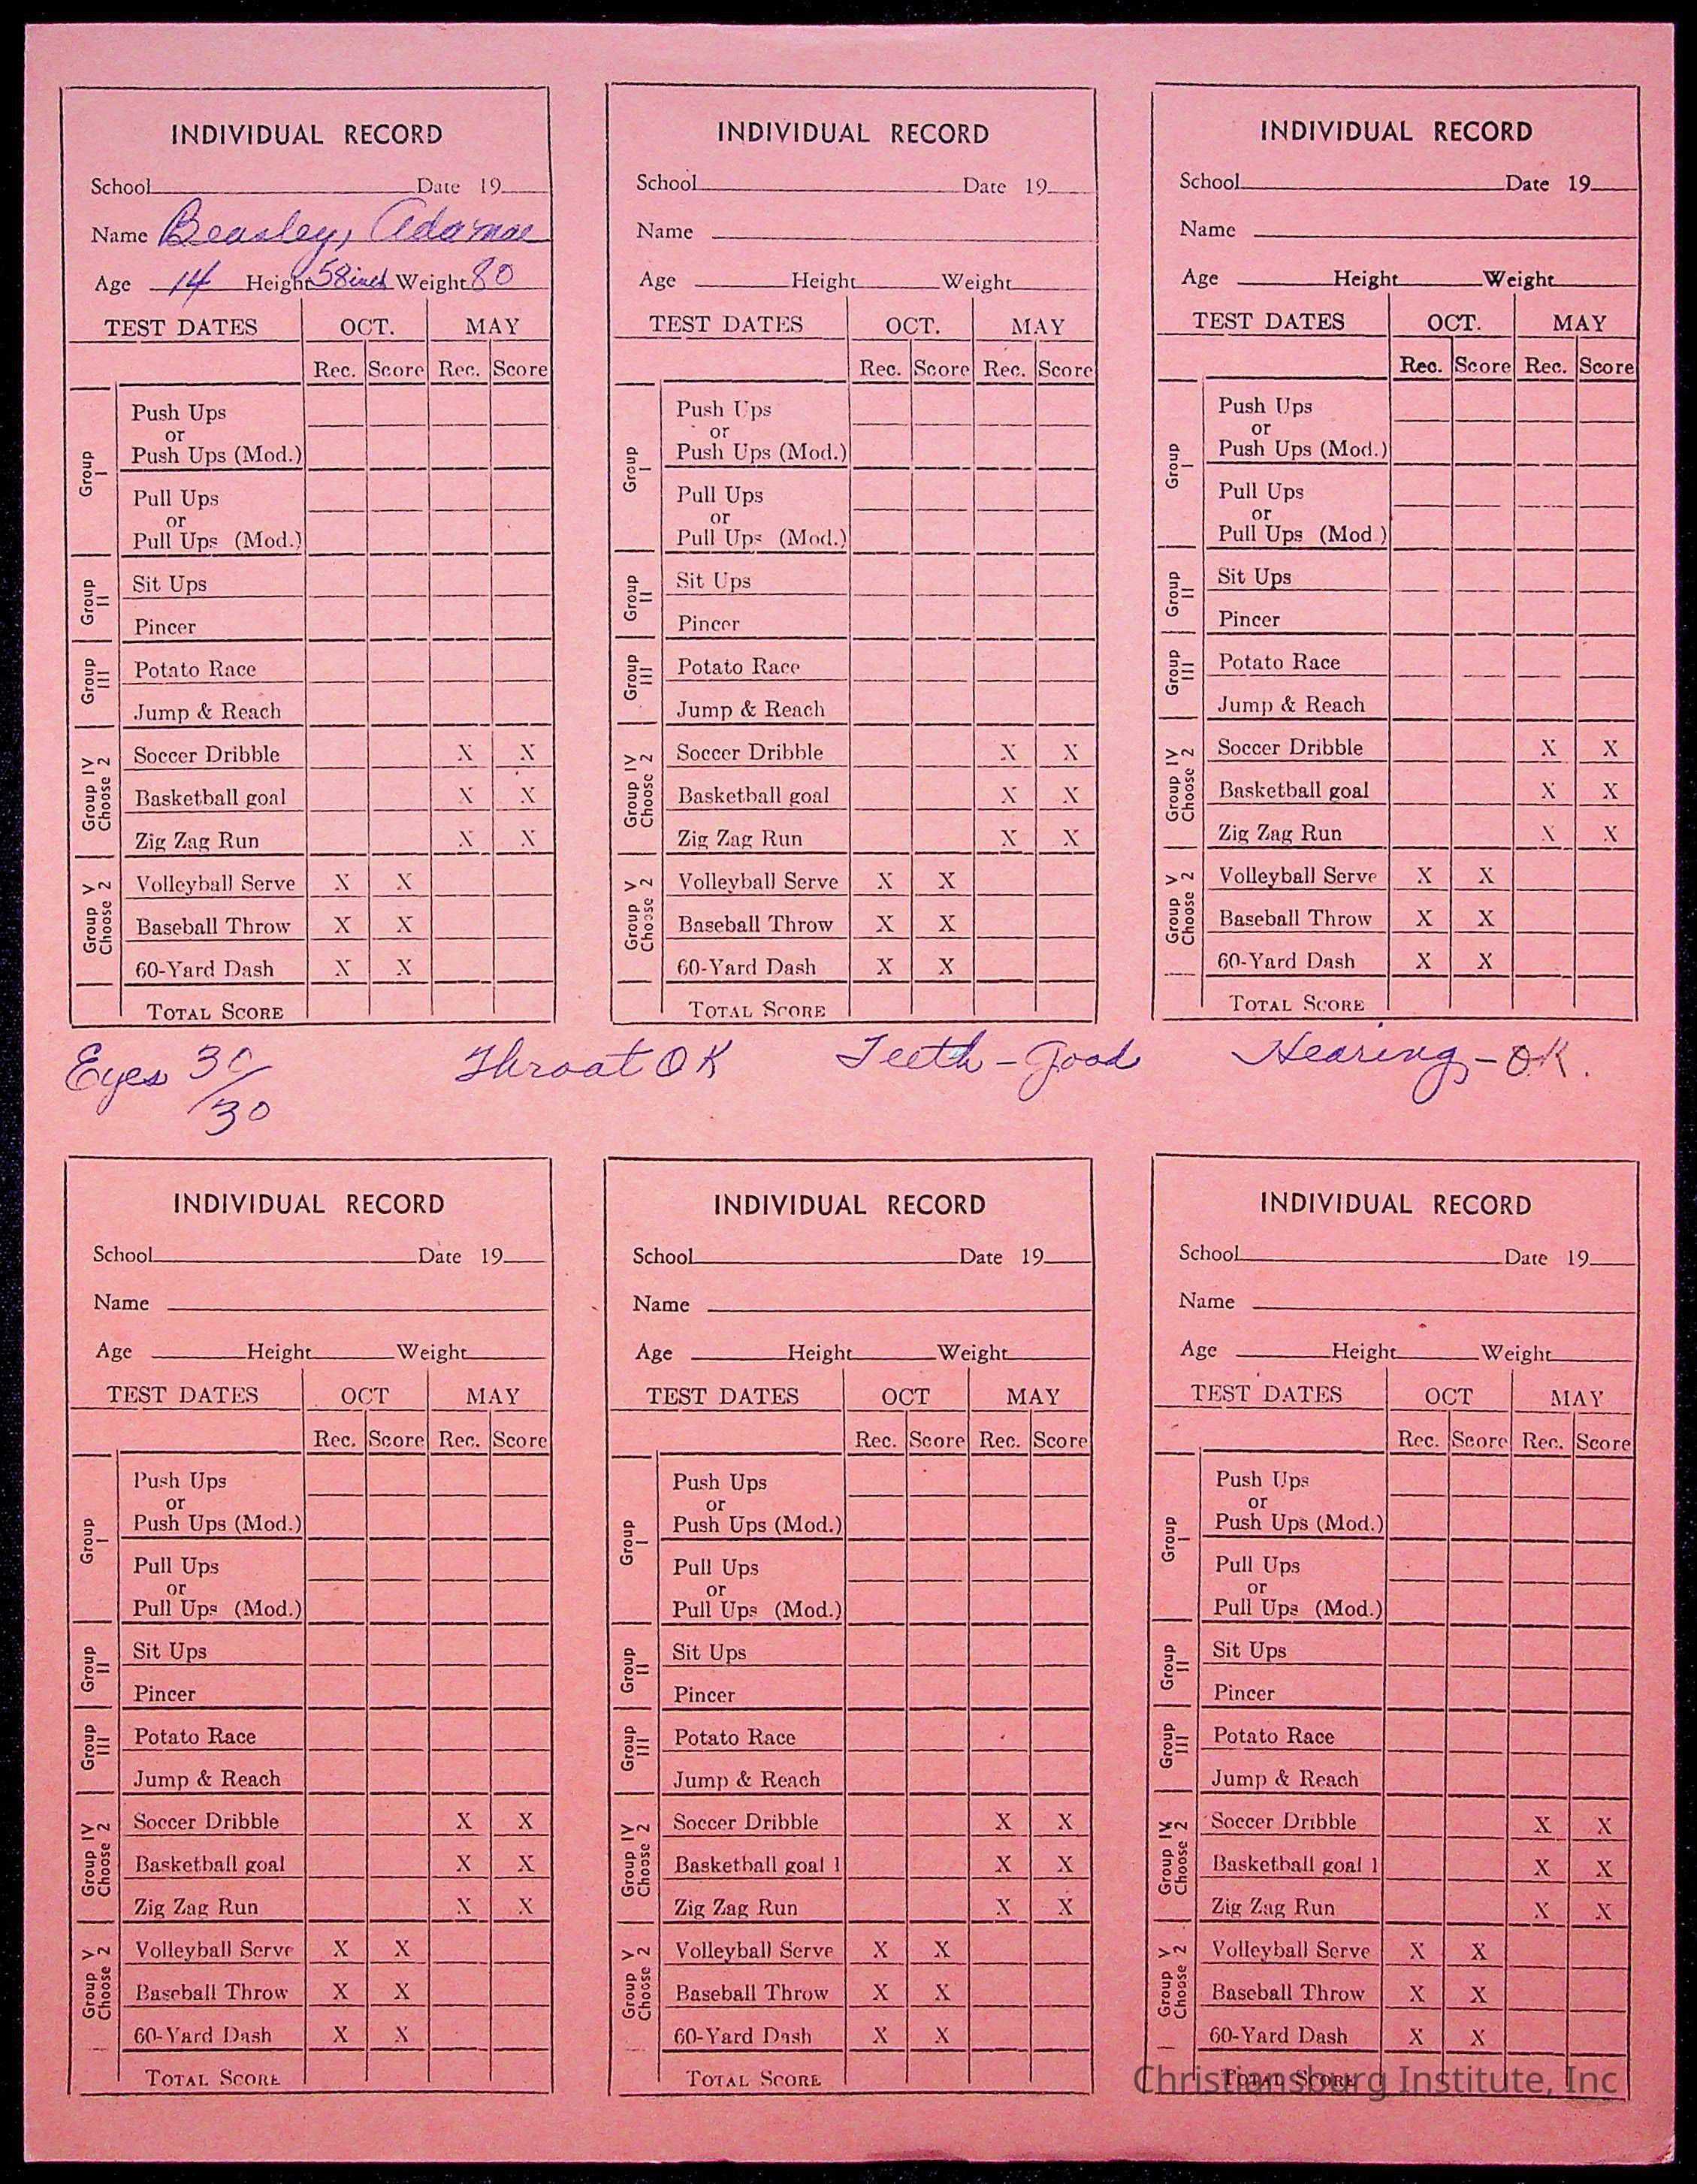 INDIVIDUAL RECORD
School Date 19
Name Beasley, Adamae
Age 14 Height 58 inch Weight 80
TEST DATES OCT. MAY
Rec. Score Rec. Score
Group I
Push Ups
or
Push Ups (Mod.)
Pull Ups
or
Pull Ups (Mod.)
Group II
Sit Ups
Pincer
Group III
Potato Race
Jump & Reach
Group IV Choose 2
Soccer Dribble X X
Basketball goal X X
Zig Zag Run X X
Group V Choose 2
Volleyball Serve X X
Baseball Throw X X
60-Yard Dash X X
TOTAL SCORE
INDIVIDUAL RECORD
School Date 19
Name
Age Height Weight
TEST DATES OCT. MAY
Rec. Score Rec. Score
Group I
Push Ups
or
Push Ups (Mod.)
Pull Ups
or
Pull Ups (Mod.)
Group II
Sit Ups
Pincer
Group III
Potato Race
Jump & Reach
Group IV Choose 2
Soccer Dribble X X
Basketball goal X X
Zig Zag Run X X
Group V Choose 2
Volleyball Serve X X
Baseball Throw X X
60-Yard Dash X X
TOTAL SCORE
INDIVIDUAL RECORD
School Date 19
Name
Age Height Weight
TEST DATES OCT. MAY
Rec. Score Rec. Score
Group I
Push Ups
or
Push Ups (Mod.)
Pull Ups
or
Pull Ups (Mod )
Group II
Sit Ups
Pincer
Group III
Potato Race
Jump & Reach
Group IV Choose 2
Soccer Dribble X X
Basketball goal X X
Zig Zag Run X X
Group V Choose 2
Volleyball Serve X X
Baseball Throw X X
60-Yard Dash X X
TOTAL SCORE
Eyes 30/30 Throat OK Teeth - Good Hearing - OK.
INDIVIDUAL RECORD
School Date 19
Name
Age Height Weight
TEST DATES OCT MAY
Rec. Score Rec. Score
Group I
Push Ups
or
Push Ups (Mod.)
Pull Ups
or
Pull Ups (Mod.)
Group II
Sit Ups
Pincer
Group III
Potato Race
Jump & Reach
Group IV Choose 2
Soccer Dribble X X
Basketball goal X X
Zig Zag Run X X
Group V Choose 2
Volleyball Serve X X
Baseball Throw X X
60-Yard Dash X X
TOTAL SCORE
INDIVIDUAL RECORD
School Date 19
Name
Age Height Weight
TEST DATES OCT MAY
Rec. Score Rec. Score
Group I
Push Ups
or
Push Ups (Mod.)
Pull Ups
or
Pull Ups (Mod.)
Group II
Sit Ups
Pincer
Group III
Potato Race
Jump & Reach
Group IV Choose 2
Soccer Dribble X X
Basketball goal 1 X X
Zig Zag Run X X
Group V Choose 2
Volleyball Serve X X
Baseball Throw X X
60-Yard Dash X X
TOTAL SCORE
INDIVIDUAL RECORD
School Date 19
Name
Age Height Weight
TEST DATES OCT MAY
Rec. Score Rec. Score
Group I
Push Ups
or
Push Ups (Mod.)
Pull Ups
or
Pull Ups (Mod.)
Group II
Sit Ups
Pincer
Group III
Potato Race
Jump & Reach
Group IV Choose 2
Soccer Dribble X X
Basketball goal 1 X X
Zig Zag Run X X
Group V Choose 2
Volleyball Serve X X
Baseball Throw X X
60-Yard Dash X X
TOTAL SCORE
Christiansburg Institute, Inc